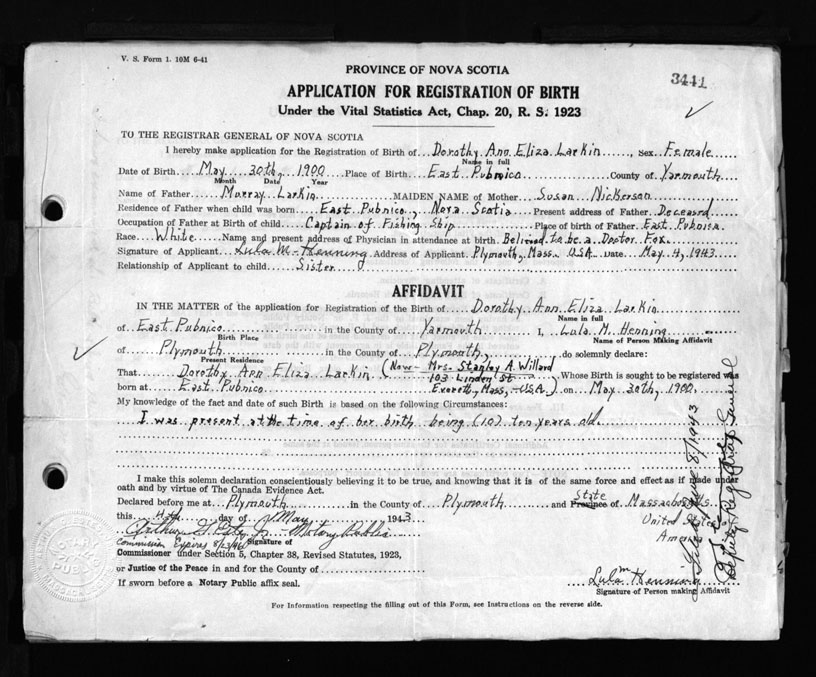 V. S. Form 1. 10M 6-41
3441
PROVINCE OF NOVA SCOTIA
APPLICATION FOR REGISTRATION OF BIRTH
Under the Vital Statistics Act, Chap. 20, R. S. 1923
TO THE REGISTRAR GENERAL OF NOVA SCOTIA
I hereby make application for the Registration of Birth of Dorothy Ann Eliza Larkin, Sex Female
Name in full
Date of Birth May 30th, 1900 Place of Birth East Pubnico County of Yarmouth
Month Date Year
Name of Father Murray Larkin MAIDEN NAME of Mother Susan Nickerson
Residence of Father when child was born East Pubnico, Nova Scotia Present address of Father Deceased
Occupation of Father at Birth of child Captain of Fishing Ship Place of birth of Father East Pubnico
Race White Name and present address of Physician in attendance at birth Believed to be a Doctor Fox
Signature of Applicant Lula M. Henning Address of Applicant Plymouth, Mass. USA Date May 4, 1943
Relationship of Applicant to child Sister
AFFIDAVIT
IN THE MATTER of the application for Registration of the Birth of Dorothy Ann Eliza Larkin
Name in full
of East Pubnico in the County of Yarmouth I, Lula M. Henning
Birth Place Name of Person Making Affidavit
of Plymouth in the County of Plymouth, do solemnly declare:
Present Residence
That Dorothy Ann Eliza Larkin (Now - Mrs. Stanley A. Willard
103 Linden St Whose Birth is sought to be registered was
born at East Pubnico Everett, Mass, USA) on May 30th, 1900.
My knowledge of the fact and date of such Birth is based on the following Circumstances:
I was present at the time of her birth being (10) ten years old.
I make this solemn declaration conscientiously believing it to be true, and knowing that it is of the same force and effect as if made under
oath and by virtue of The Canada Evidence Act.
Declared before me at Plymouth in the County of Plymouth and Province State of Massachusetts
this 4th day of May 1943 United States
Arthur Notary Public America
Commission Expires Signature of
Commissioner under Section 5, Chapter 38, Revised Statutes, 1923,
or Justice of the Peace in and for the County of
If sworn before a Notary Public affix seal.
Lula M Henning
Signature of Person making Affidavit
For Information respecting the filling out of this Form, see Instructions on the reverse side.
June 8/1943
Deputy Registrar General
NOTARY PUBLIC